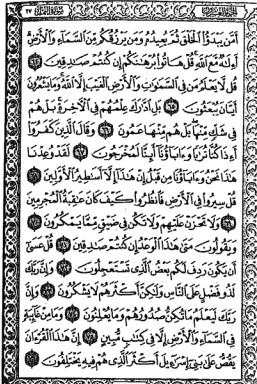 أَمَّن يَبْدَؤُا۟ ٱلْخَلْقَ ثُمَّ يُعِيدُهُۥ وَمَن يَرْزُقُكُم مِّنَ ٱلسَّمَآءِ وَٱلْأَرْضِ
أَءِلَـٰهٌ مَّعَ ٱللَّهِ قُلْ هَاتُوا۟ بُرْهَـٰنَكُمْ إِن كُنتُمْ صَـٰدِقِينَ
قُل لَّا يَعْلَمُ مَن فِى ٱلسَّمَـٰوَٰتِ وَٱلْأَرْضِ ٱلْغَيْبَ إِلَّا ٱللَّهُ وَمَا يَشْعُرُونَ
أَيَّانَ يُبْعَثُونَ بَلِ ٱدَّٰرَكَ عِلْمُهُمْ فِى ٱلْـَٔاخِرَةِ بَلْ هُمْ
فِى شَكٍّ مِّنْهَا بَلْ هُم مِّنْهَا عَمُونَ وَقَالَ ٱلَّذِينَ كَفَرُوٓا۟
أَءِذَا كُنَّا تُرَٰبًا وَءَابَآؤُنَآ أَئِنَّا لَمُخْرَجُونَ لَقَدْ وُعِدْنَا
هَـٰذَا نَحْنُ وَءَابَآؤُنَا مِن قَبْلُ إِنْ هَـٰذَآ إِلَّآ أَسَـٰطِيرُ ٱلْأَوَّلِينَ
قُلْ سِيرُوا۟ فِى ٱلْأَرْضِ فَٱنظُرُوا۟ كَيْفَ كَانَ عَـٰقِبَةُ ٱلْمُجْرِمِينَ
وَلَا تَحْزَنْ عَلَيْهِمْ وَلَا تَكُن فِى ضَيْقٍ مِّمَّا يَمْكُرُونَ
وَيَقُولُونَ مَتَىٰ هَـٰذَا ٱلْوَعْدُ إِن كُنتُمْ صَـٰدِقِينَ قُلْ عَسَىٰٓ
أَن يَكُونَ رَدِفَ لَكُم بَعْضُ ٱلَّذِى تَسْتَعْجِلُونَ وَإِنَّ رَبَّكَ
لَذُو فَضْلٍ عَلَى ٱلنَّاسِ وَلَـٰكِنَّ أَكْثَرَهُمْ لَا يَشْكُرُونَ وَإِنَّ
رَبَّكَ لَيَعْلَمُ مَا تُكِنُّ صُدُورُهُمْ وَمَا يُعْلِنُونَ وَمَا مِنْ غَآئِبَةٍ
فِى ٱلسَّمَآءِ وَٱلْأَرْضِ إِلَّا فِى كِتَـٰبٍ مُّبِينٍ إِنَّ هَـٰذَا ٱلْقُرْءَانَ
يَقُصُّ عَلَىٰ بَنِىٓ إِسْرَٰٓءِيلَ أَكْثَرَ ٱلَّذِى هُمْ فِيهِ يَخْتَلِفُونَ